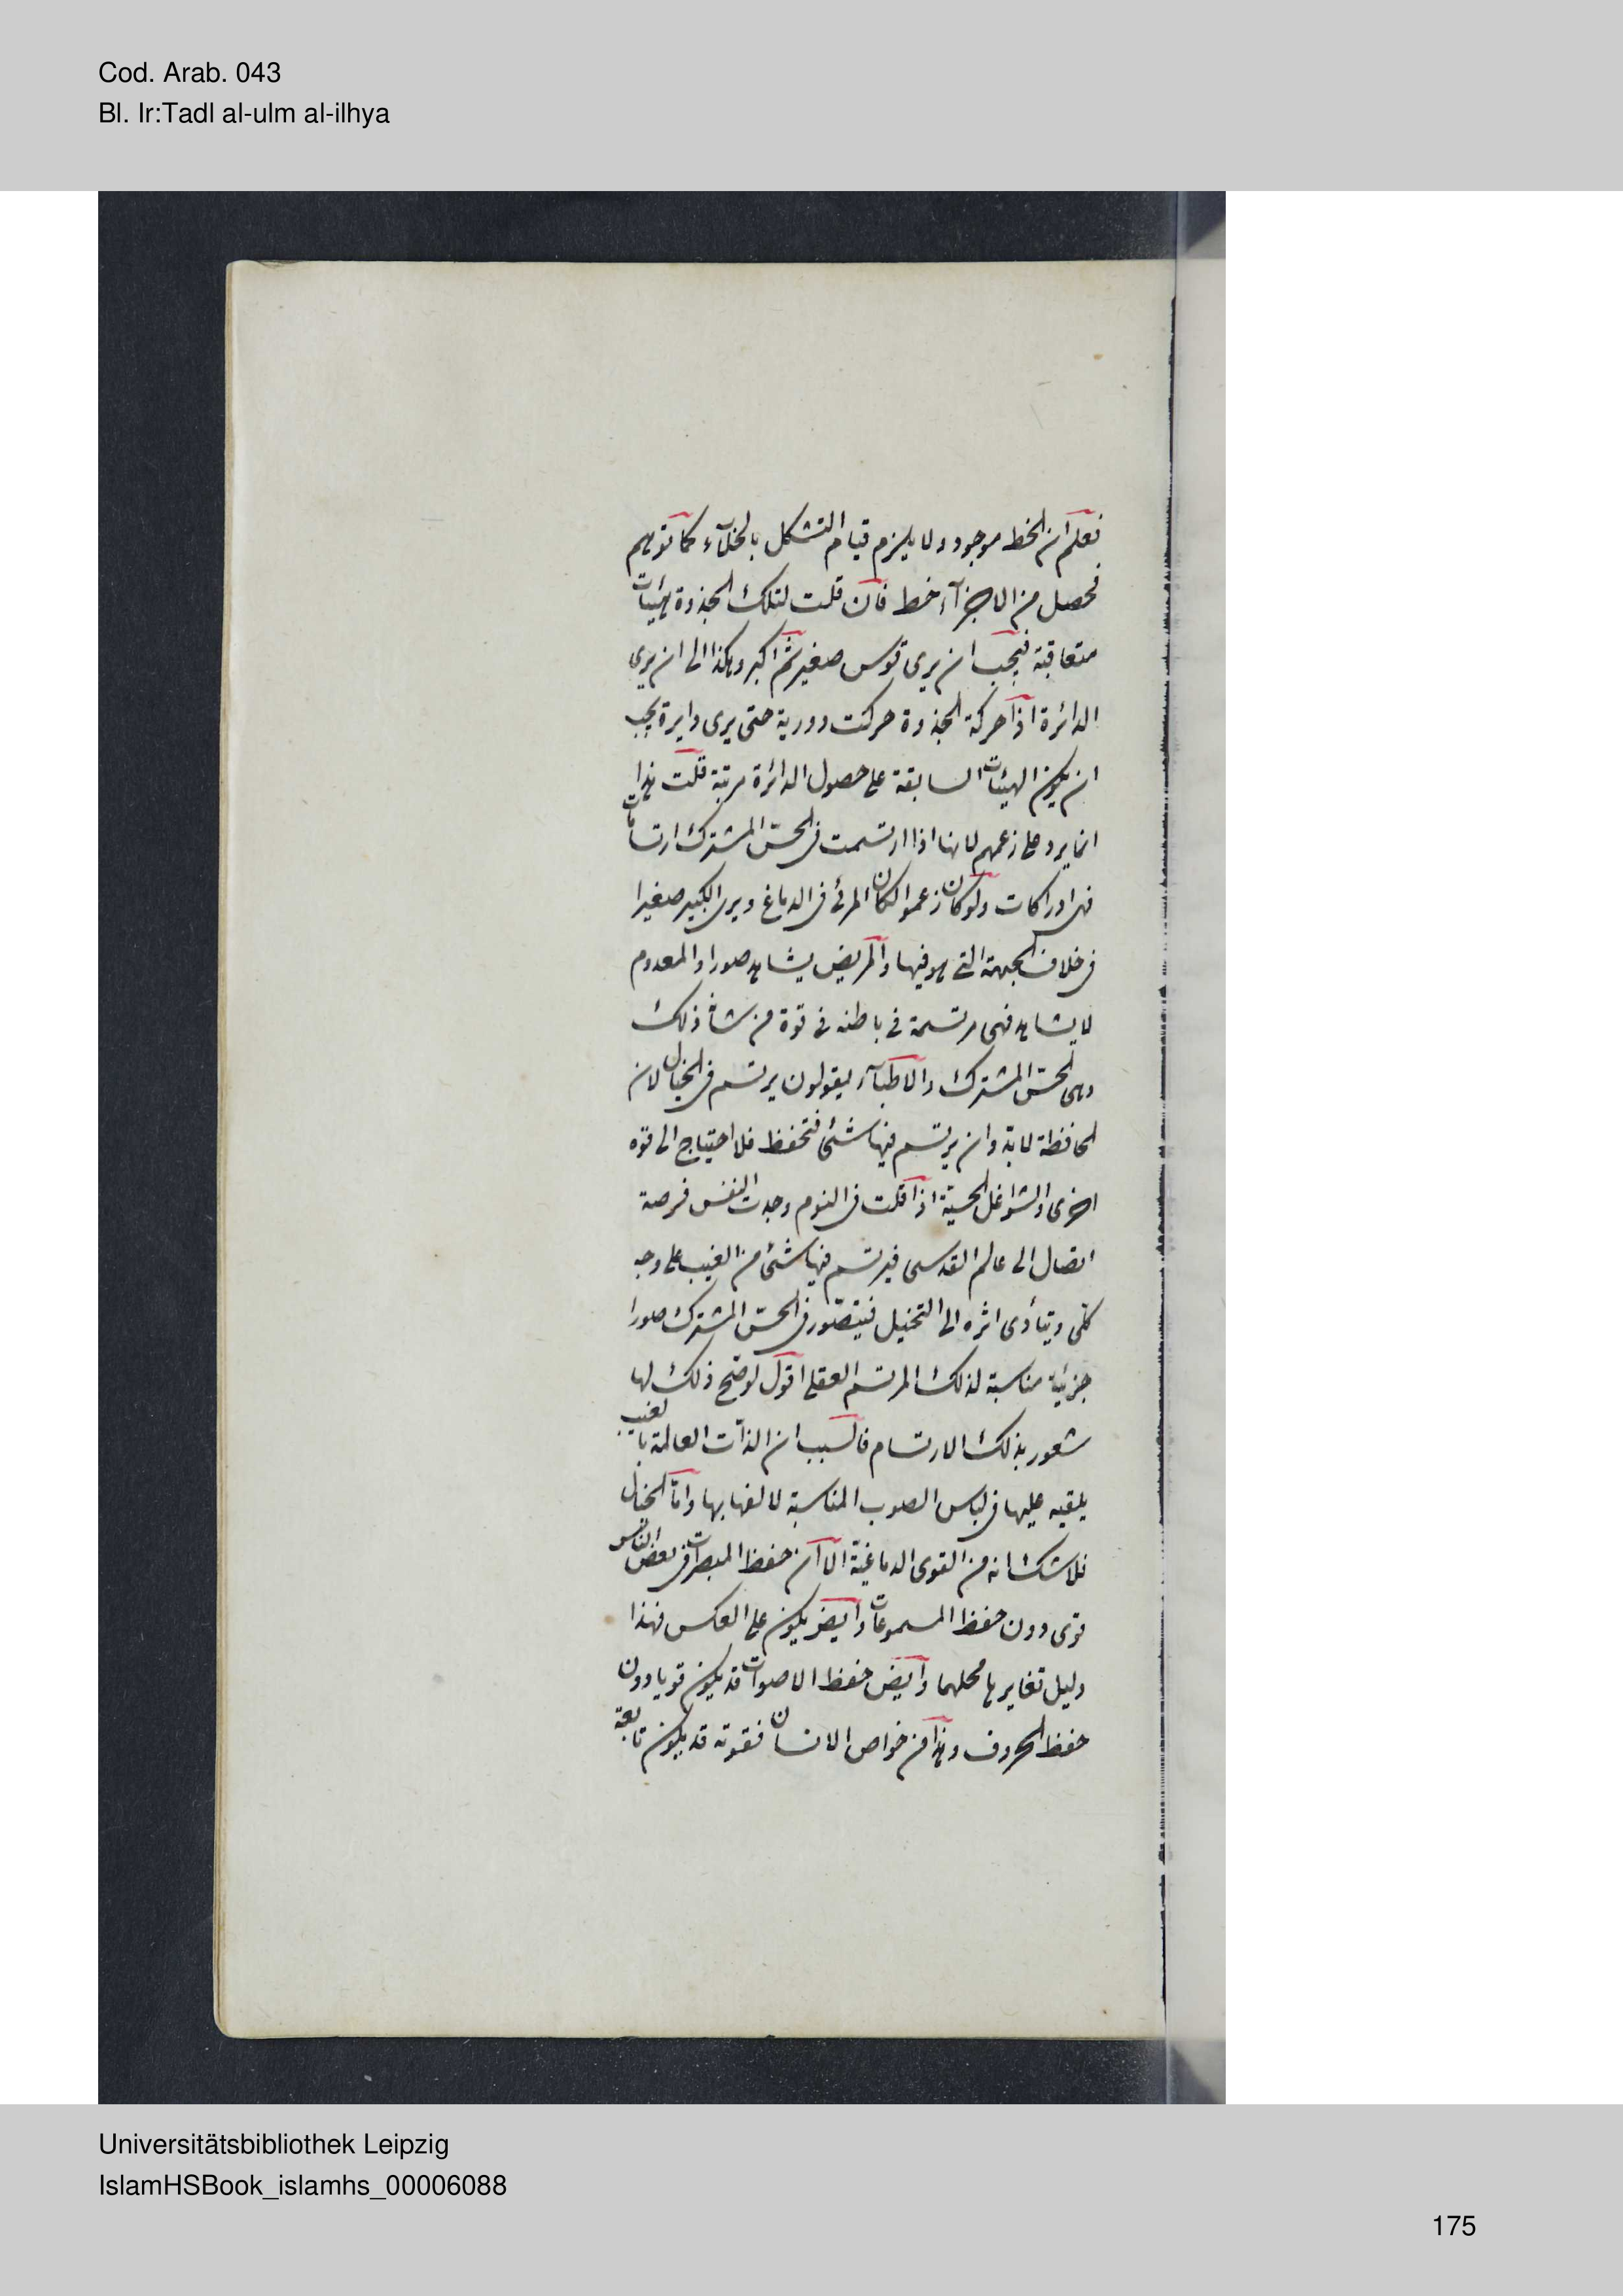 Cod. Arab. 043
Bl. Ir:Tadl al-ulm al-ilhya
فعلم ان الخط موجود ولا يلزم قيام التشكل بالخلآء كما توهم
فحصل من الاجزآء خط فان قلت لتلك الجذوة هيئات
متعاقبة فيجب ان يرى قوس صغير ثم اكبر وهكذا الى ان يرى
الدائرة اذا حركة الجذوة حركت دورية حتى يرى دايرة يجب
ان يكون الهيئات السابقة على حصول الدائرة مرتبة قلت هذا
انما يرد على زعمهم لانها اذا ارتسمت فى الحسّ المشترك ارتسامات
فهى ادراكات ولو كان زعموا لكان المرئ فى الدماغ ويرى الكبير صغيرا
فى خلاف الجهة التى هو فيها والمريض يشاهد صورا والمعدوم
لا يشاهد فهى مرتسمة فى باطنه فى قوة من شأن ذلك
وهى الحسّ المشترك والاطبآء يقولون يرتسم فى الخيال لان
الحافظة لابدّ وان يرتسم فيها شئ فتحفظ فلا احتياج الى قوه
اخرى والشواغل الحسيّة اذا قلت فى النوم وجدت النفس فرصة
اتصال الى عالم القدسى فيرتسم فيها شئ من الغيب على وجه
كلّى ويتأدى اثره الى التخيل فيتصّور فى الحسّ المشترك صورا
جزئية مناسبة لذلك المرتسم العقلى اقول لو صّح ذلك لها
شعور بذلك الارتسام فالسبب ان الذات العالمة بالغيب
يلقيه عليها فى لباس الصوب المناسبة لالفها بها وامّا الخيال
فلا شك انه من القوى الدماغيّة الا ان حفظ المبصرات فى بعض الناس
قوى دون حفظ المسموعات وايض يكون على العكس فهذا
دليل تغايرها محلهما وايض حفظ الاصوات قد يكون قويا دون
حفظ الحروف وهذا من خواص الانسان فقوته قد يكون تابعة
Universitätsbibliothek Leipzig
IslamHSBook_islamhs_00006088
175